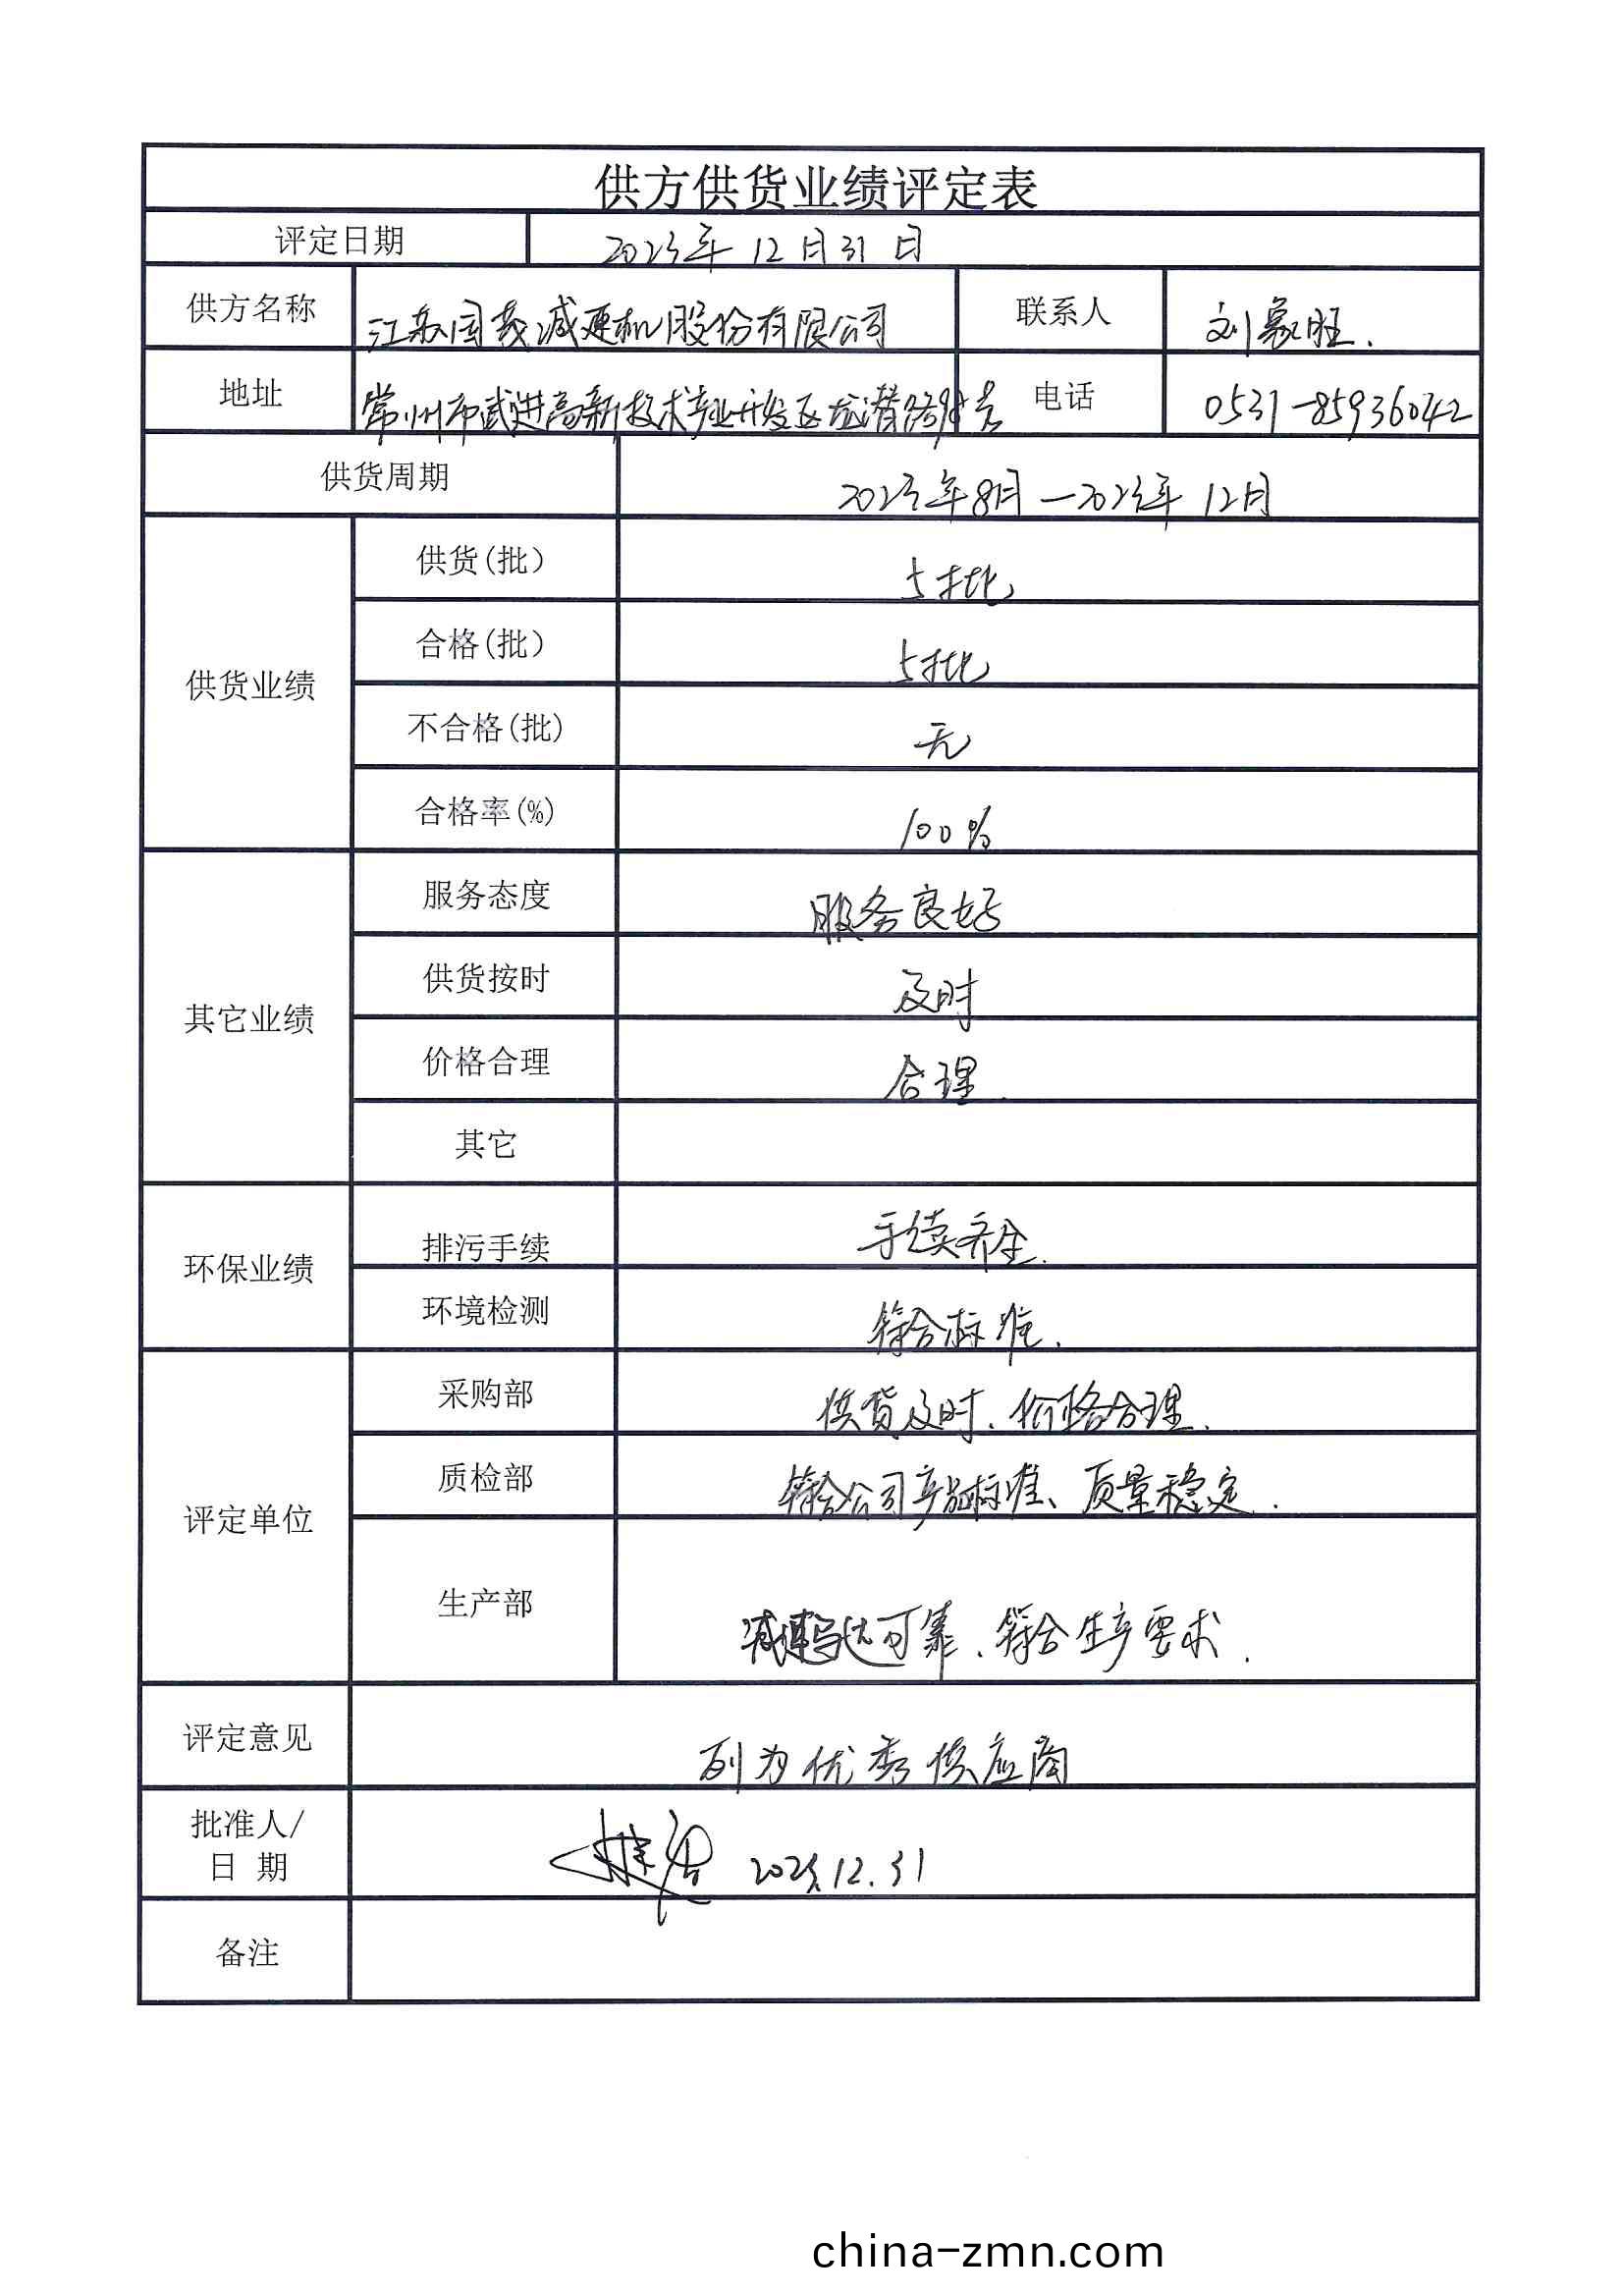 供方供货业绩评定表
评定日期 2023年12月31日
供方名称 江苏国茂减速机股份有限公司 联系人 刘家旺.
地址 常州市武进高新技术产业开发区龙潜路98号 电话 0531-85936042
供货周期 2023年8月—2023年12月
供货业绩
供货(批) 5批
合格(批) 5批
不合格(批) 无
合格率(%) 100%
其它业绩
服务态度 服务良好
供货按时 及时
价格合理 合理.
其它
环保业绩
排污手续 手续齐全.
环境检测 符合标准.
评定单位
采购部 供货及时、价格合理.
质检部 符合公司产品标准、质量稳定.
生产部 减速 可靠、符合生产要求.
评定意见 列为优秀供应商
批准人/
日 期 2023.12.31
备注
china-zmn.com